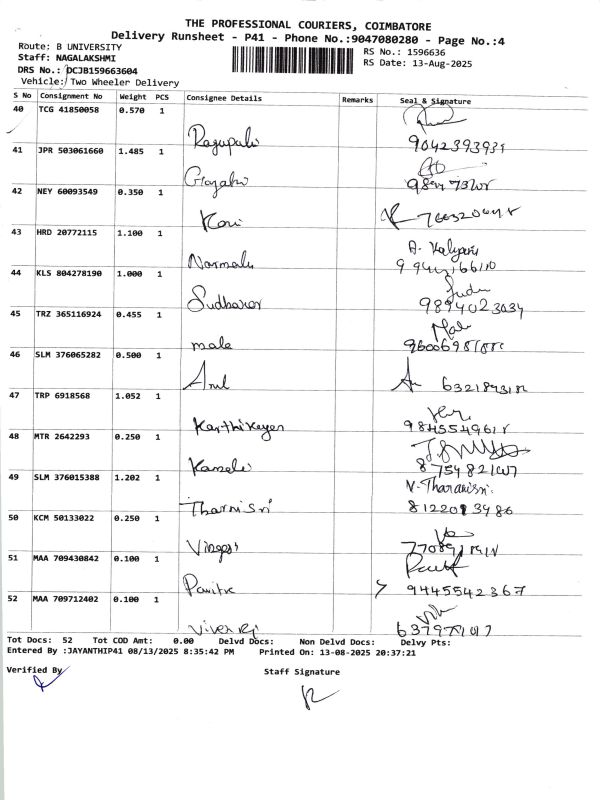 THE PROFESSIONAL COURIERS, COIMBATORE
Delivery Runsheet - P41 - Phone No.:9047080280 - Page No.:4
Route: B UNIVERSITY
RS No.: 1596636
Staff: NAGALAKSHMI
RS Date: 13-Aug-2025
DRS No.: DCJB159663604
Vehicle: Two Wheeler Delivery
S No Consignment No Weight PCS Consignee Details Remarks Seal & Signature
40 TCG 41850058 0.570 1
Ragupali 9042393931
41 JPR 503061660 1.485 1
Gayatri
42 NEY 60093549 0.350 1
Kavi
43 HRD 20772115 1.100 1
A. Kalyani
Normala
44 KLS 804278190 1.000 1
Sudharar 9894023034
45 TRZ 365116924 0.455 1
mala
46 SLM 376065282 0.500 1
Anil
47 TRP 6918568 1.052 1
Karthikeyen 9845549618
48 MTR 2642293 0.250 1
Kamali
49 SLM 376015388 1.202 1
N. Tharanisri.
Tharnisri 8122013486
50 KCM 50133022 0.250 1
51 MAA 709430842 0.100 1
9445542367
52 MAA 709712402 0.100 1
Tot Docs: 52 Tot COD Amt: 0.00 Delvd Docs: Non Delvd Docs: Delvy Pts:
Entered By :JAYANTHIP41 08/13/2025 8:35:42 PM Printed On: 13-08-2025 20:37:21
Verified By Staff Signature